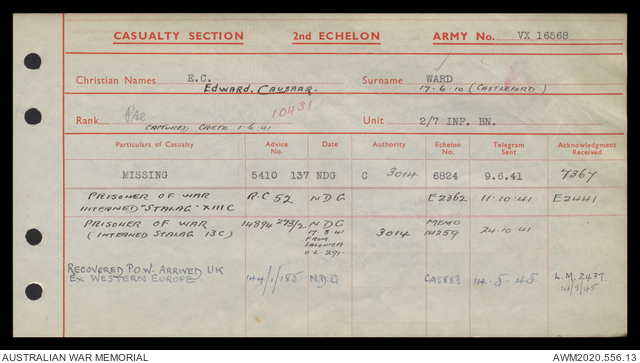 CASUALTY SECTION 2nd ECHELON ARMY No. VX 16568
Christian Names E.C. Surname WARD
EDWARD. CAUSAAR. 17-6-10 (CASTLEFORD)
10431
Rank Pte Unit 2/7 INF. BN.
CAPTURED CRETE 1-6-41
Particulars of Casualty Advice No. Date Authority Echelon No. Telegram Sent Acknowledgment Received
MISSING 5410 137 NDG C 3014 6824 9.6.41 7367
PRISONER OF WAR R.C 52 N D G E2362 11-10-41 E2441
INTERNED "STALAG" XIII C
PRISONER OF WAR 14894 273/2 N D G MEMO
(INTERNED STALAG 13C) 17 8 41 3014 14259 24-10-41
FROM
SALONICA
O.L. 291.
RECOVERED P.O.W. ARRIVED UK 144/1/185 N.D.G CA2883 14.5.45 L.M. 2437.
EX WESTERN EUROPE 14/5/45
AUSTRALIAN WAR MEMORIAL AWM2020.556.13